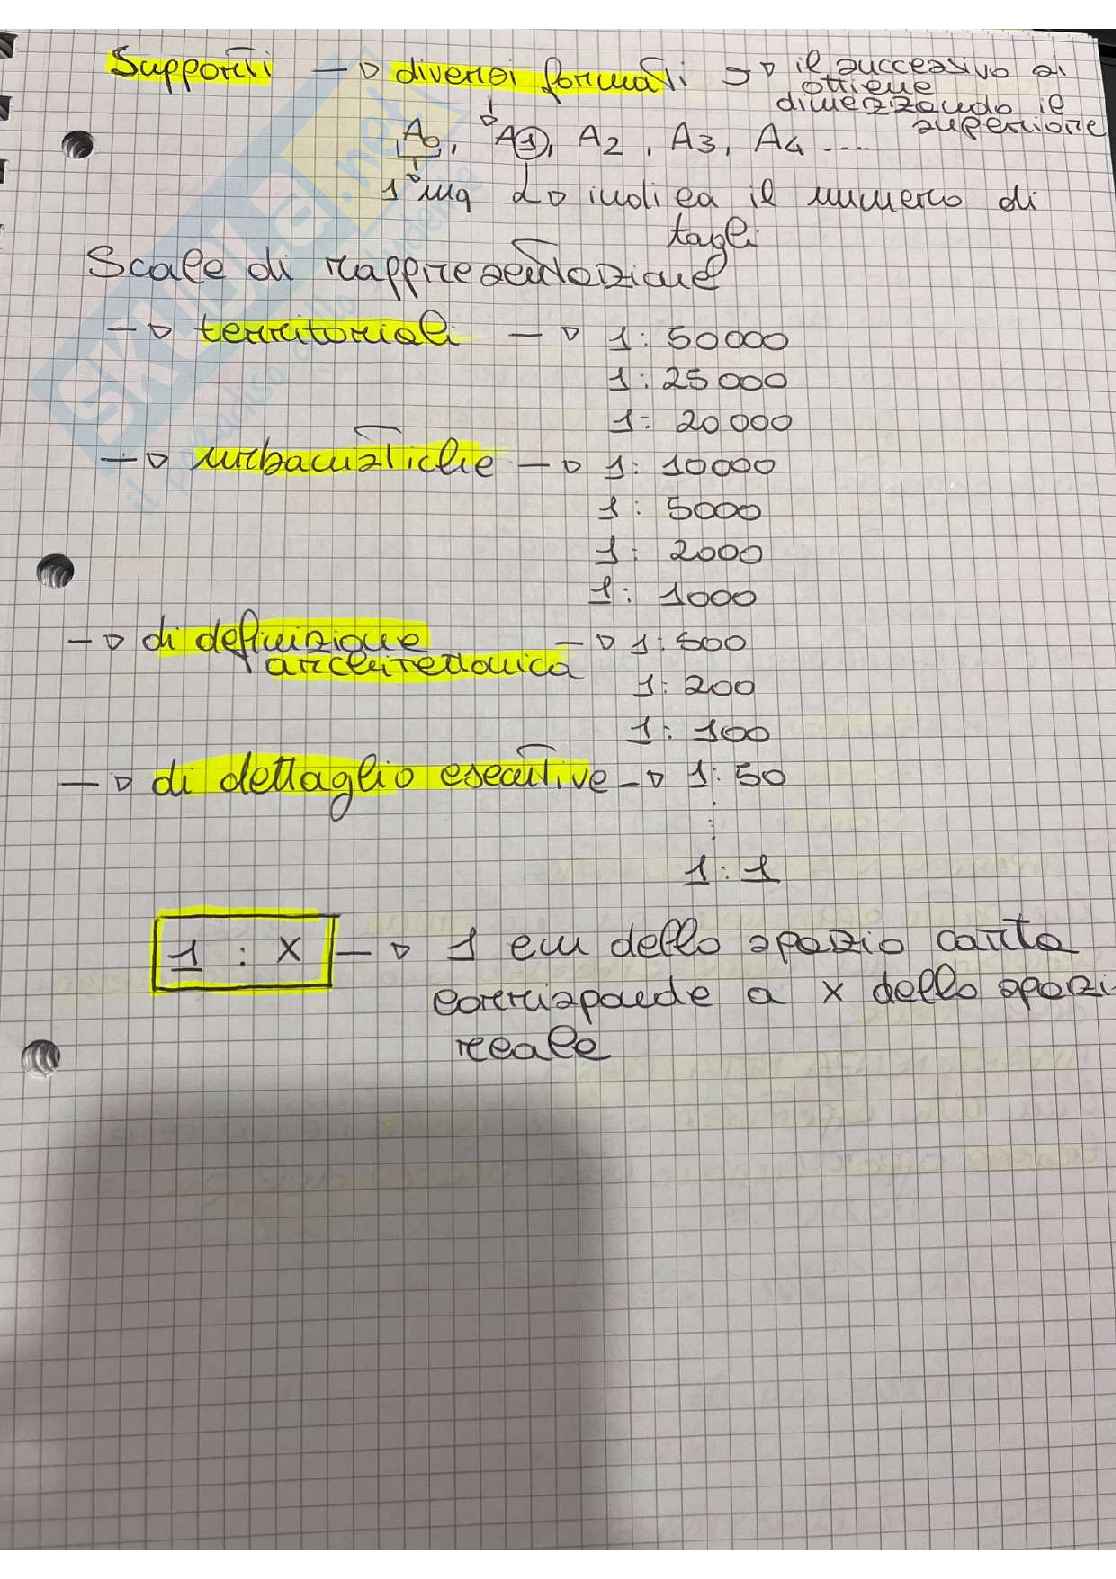 Supporti → diversi formati → il successivo si
ottiene
dimezzando il
superiore
A0, A1, A2, A3, A4 ...
1 mq → indica il numero di
tagli
Scale di rappresentazione
→ territoriali → 1:50000
1:25000
1:20000
→ urbanistiche → 1:10000
1:5000
1:2000
1:1000
→ di definizione → 1:500
architettonica
1:200
1:100
→ di dettaglio esecutive → 1:50
⋮
1:1
1 : x → 1 cm dello spazio carta
corrisponde a x dello spazi
reale
SKUOLA.net